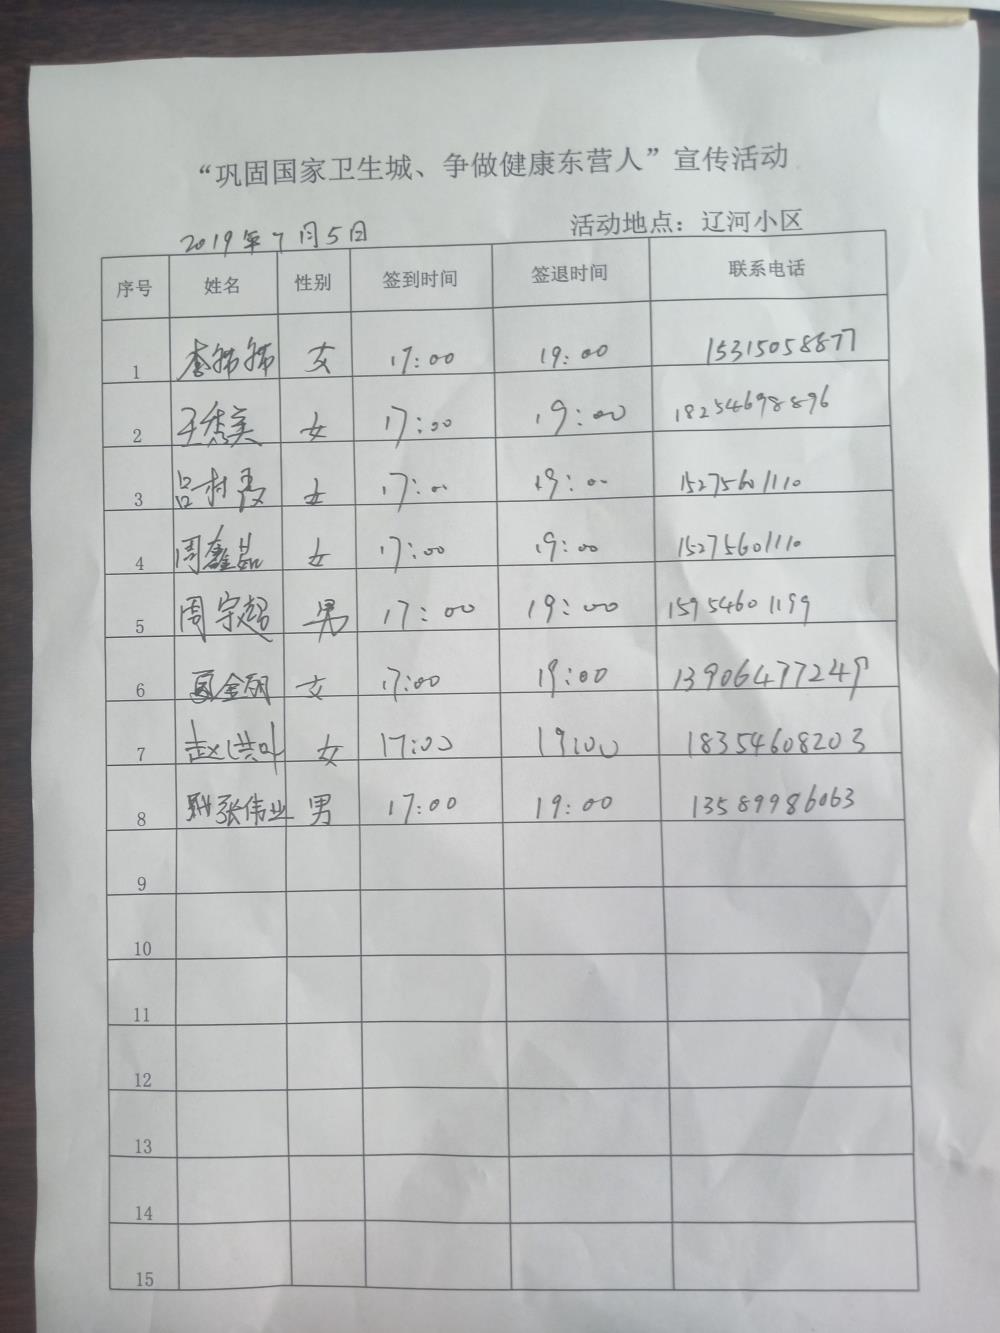 “巩固国家卫生城、争做健康东营人”宣传活动
2019年7月5日 活动地点：辽河小区
序号 姓名 性别 签到时间 签退时间 联系电话
1 李 女 17:00 19:00 15315058877
2 王秀美 女 17:00 19:00 18254698896
3 吕村霞 女 17:00 19:00 15275601110
4 周鑫茹 女 17:00 19:00 15275601110
5 周宗超 男 17:00 19:00 15954601199
6 金丽 女 17:00 19:00 13906477249
7 赵洪叶 女 17:00 19:00 18354608203
8 张伟业 男 17:00 19:00 13589986063
9
10
11
12
13
14
15